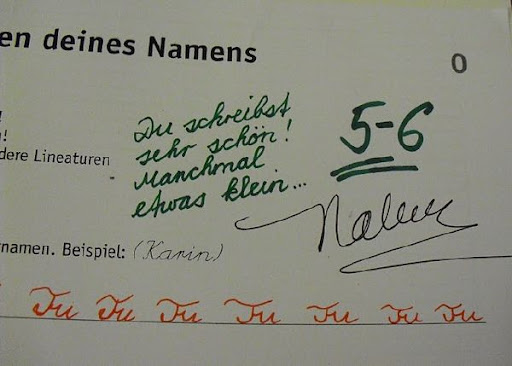 en deines Namens
0
!
dere Lineaturen
Du schreibst
sehr schön!
Manchmal
etwas klein...
5-6
namen. Beispiel: (Karin)
Tu Tu Tu Tu Tu Tu Tu